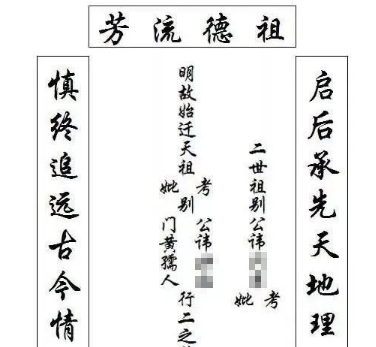 祖德流芳
启后承先天地理
二世祖别公讳
考
妣
明故始迁天祖
考
妣
别
公讳
门黄孺人
行二之
慎终追远古今情